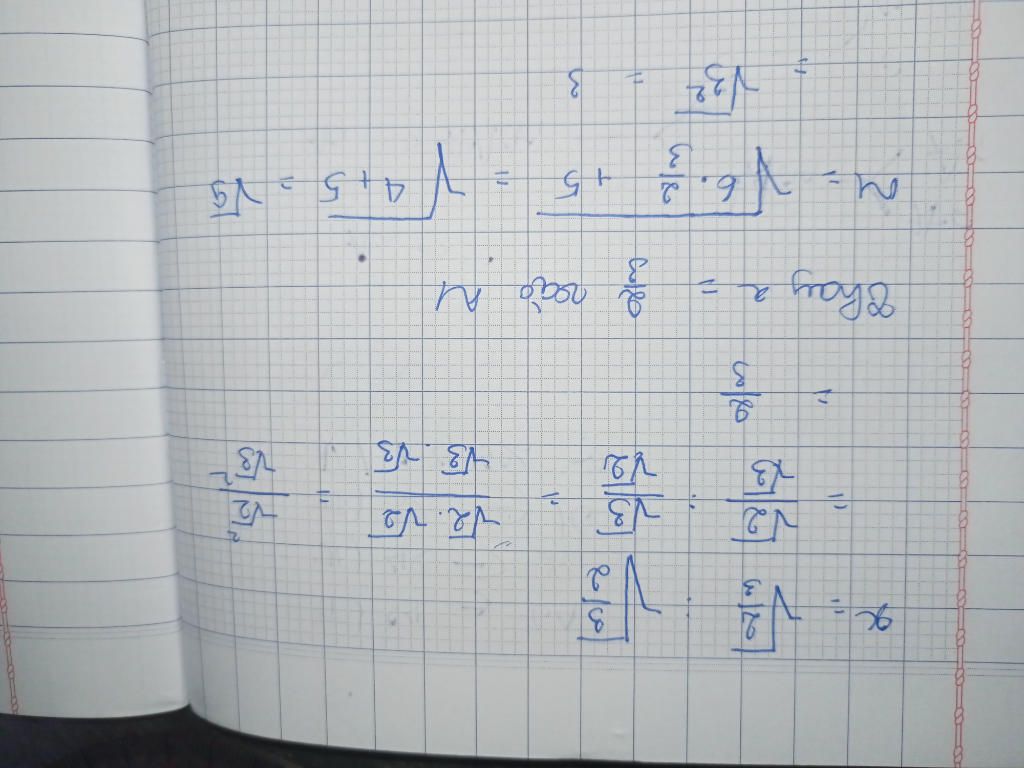 x = √(2/3) : √(3/2)
= √2/√3 : √3/√2 = √2·√2/√3·√3 = √2²/√3²
= 2/3
Thay x = 2/3 vào N
N = √(6·2/3 + 5) = √(4+5) = √9
= √3² = 3